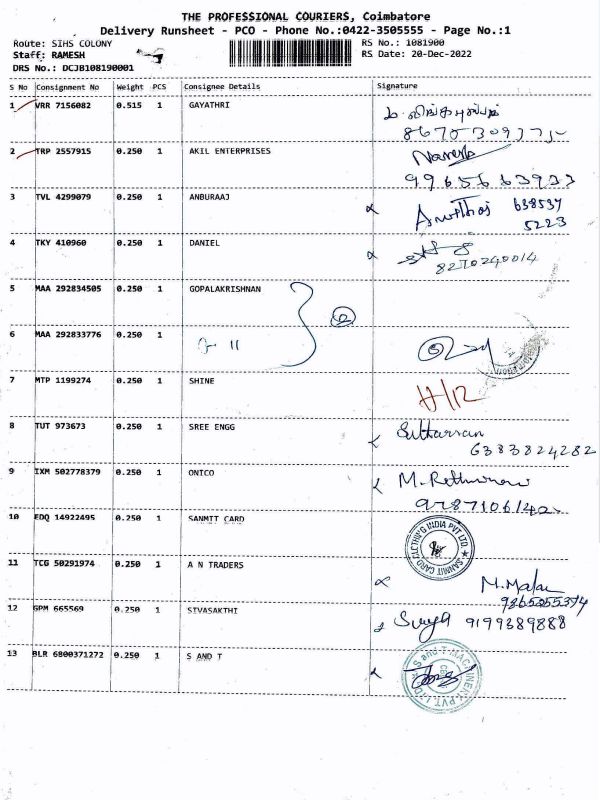 THE PROFESSIONAL COURIERS, Coimbatore
Delivery Runsheet - PCO - Phone No.:0422-3505555 - Page No.:1
Route: SIHS COLONY RS No.: 1081900
Staff: RAMESH RS Date: 20-Dec-2022
DRS No.: DCJB108190001
S No Consignment No Weight PCS Consignee Details Signature
1 VRR 7156082 0.515 1 GAYATHRI
2 TRP 2557915 0.250 1 AKIL ENTERPRISES Naresh
9965663933
3 TVL 4299079 0.250 1 ANBURAAJ 638537
5223
4 TKY 410960 0.250 1 DANIEL
8270240014
5 MAA 292834505 0.250 1 GOPALAKRISHNAN
2
6 MAA 292833776 0.250 1 11
7 MTP 1199274 0.250 1 SHINE H/12
8 TUT 973673 0.250 1 SREE ENGG
6383824282
9 IXM 502778379 0.250 1 ONICO
10 EDQ 14922495 0.250 1 SANMIT CARD
SANMIT CARD CLOTHING INDIA PVT LTD
11 TCG 50291974 0.250 1 A N TRADERS M.Malar
12 GPM 665569 0.250 1 SIVASAKTHI Surya 9199389888
13 BLR 6800371272 0.250 1 S AND T
S and T MACHINERY PVT. LTD.